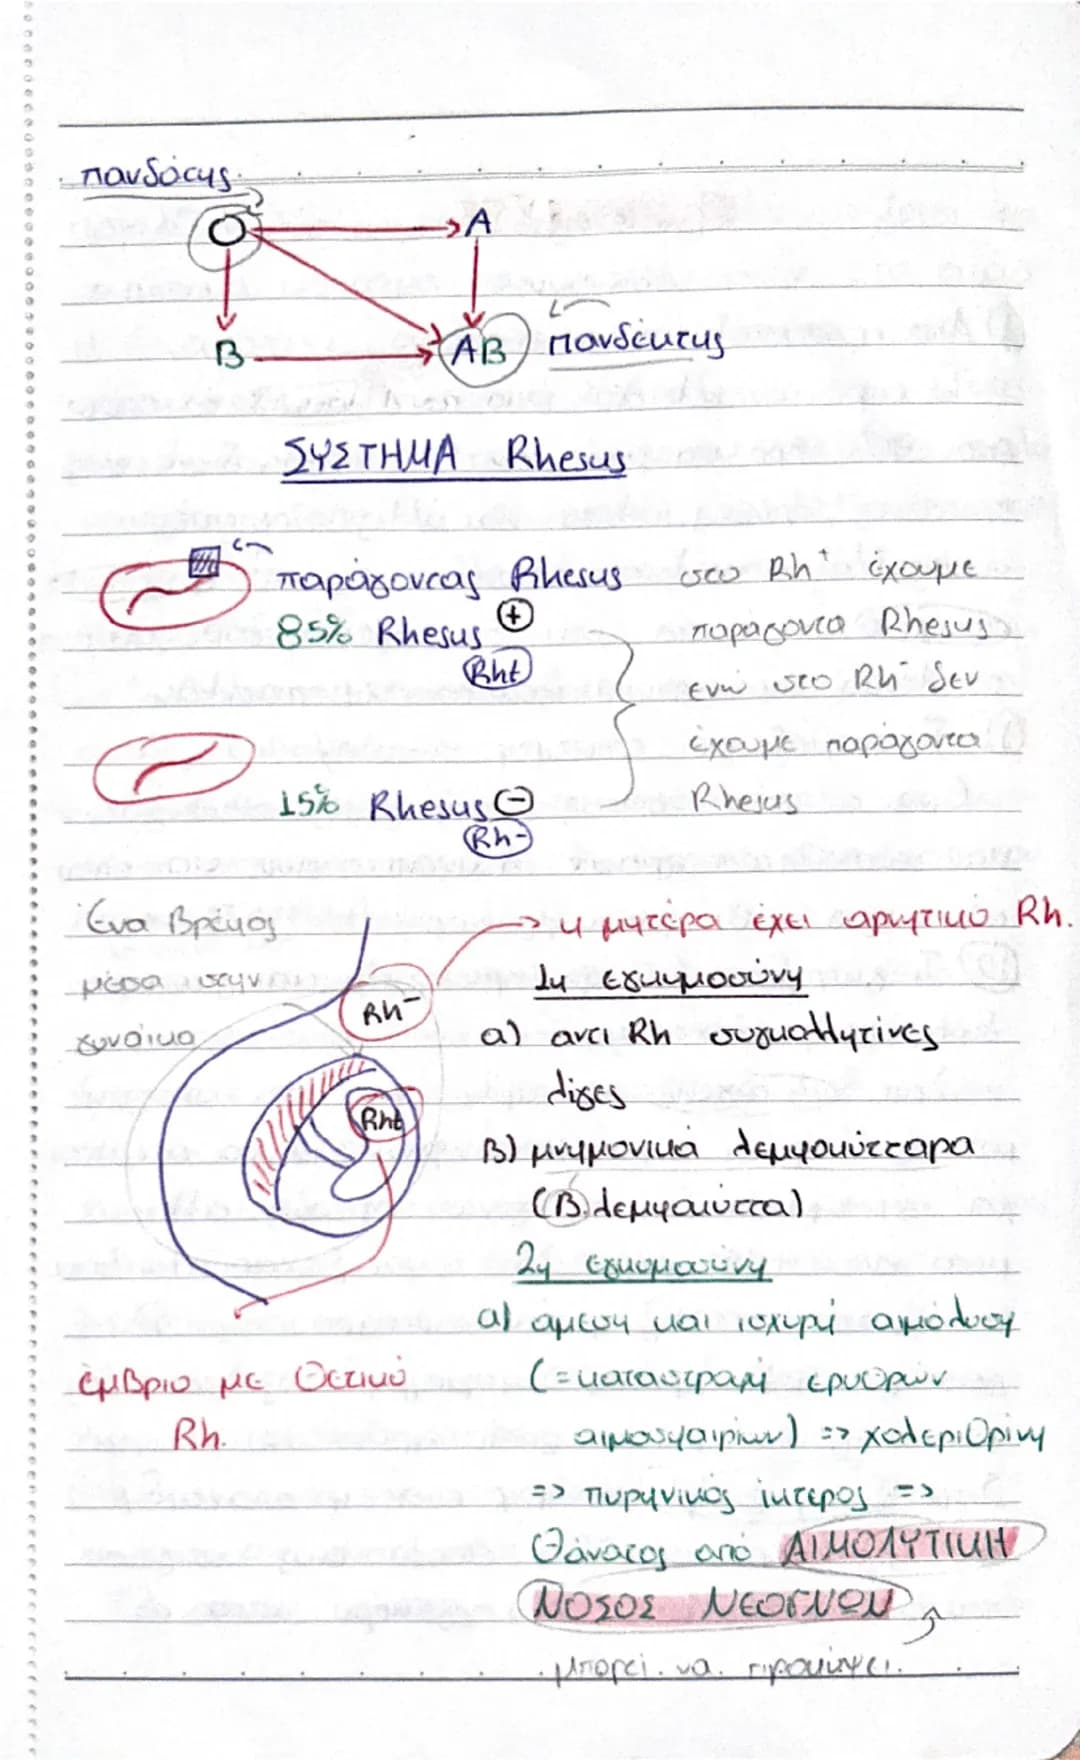 πανδότης
O A
B AB πανδέκτης
ΣΥΣΤΗΜΑ Rhesus
παράγοντας Rhesus
85% Rhesus +
Rh+
15% Rhesus -
Rh-
στο Rh+ έχουμε
παράγοντα Rhesus
ενώ στο Rh- δεν
έχουμε παράγοντα
Rhesus
Ένα Βρέφος
μέσα στην
γυναίκα
Rh-
Rh+
έμβριο με Θετικό
Rh.
→ η μητέρα έχει αρνητικό Rh.
1η εγκυμοσύνη
α) αντι Rh συγκολλητίνες
λίγες
Β) μνημονικά λεμφοκύτταρα
(Β λεμφοκύττα)
2η εγκυμοσύνη
α) άμεση και ισχυρή αιμόλυση
(=καταστροφή ερυθρών
αιμοσφαιρίων) => χολεριθρίνη
=> πυρηνικός ίκτερος =>
Θάνατος από ΑΙΜΟΛΥΤΙΚΗ
ΝΟΣΟΣ ΝΕΟΓΝΩΝ
μπορεί να προκύψει.